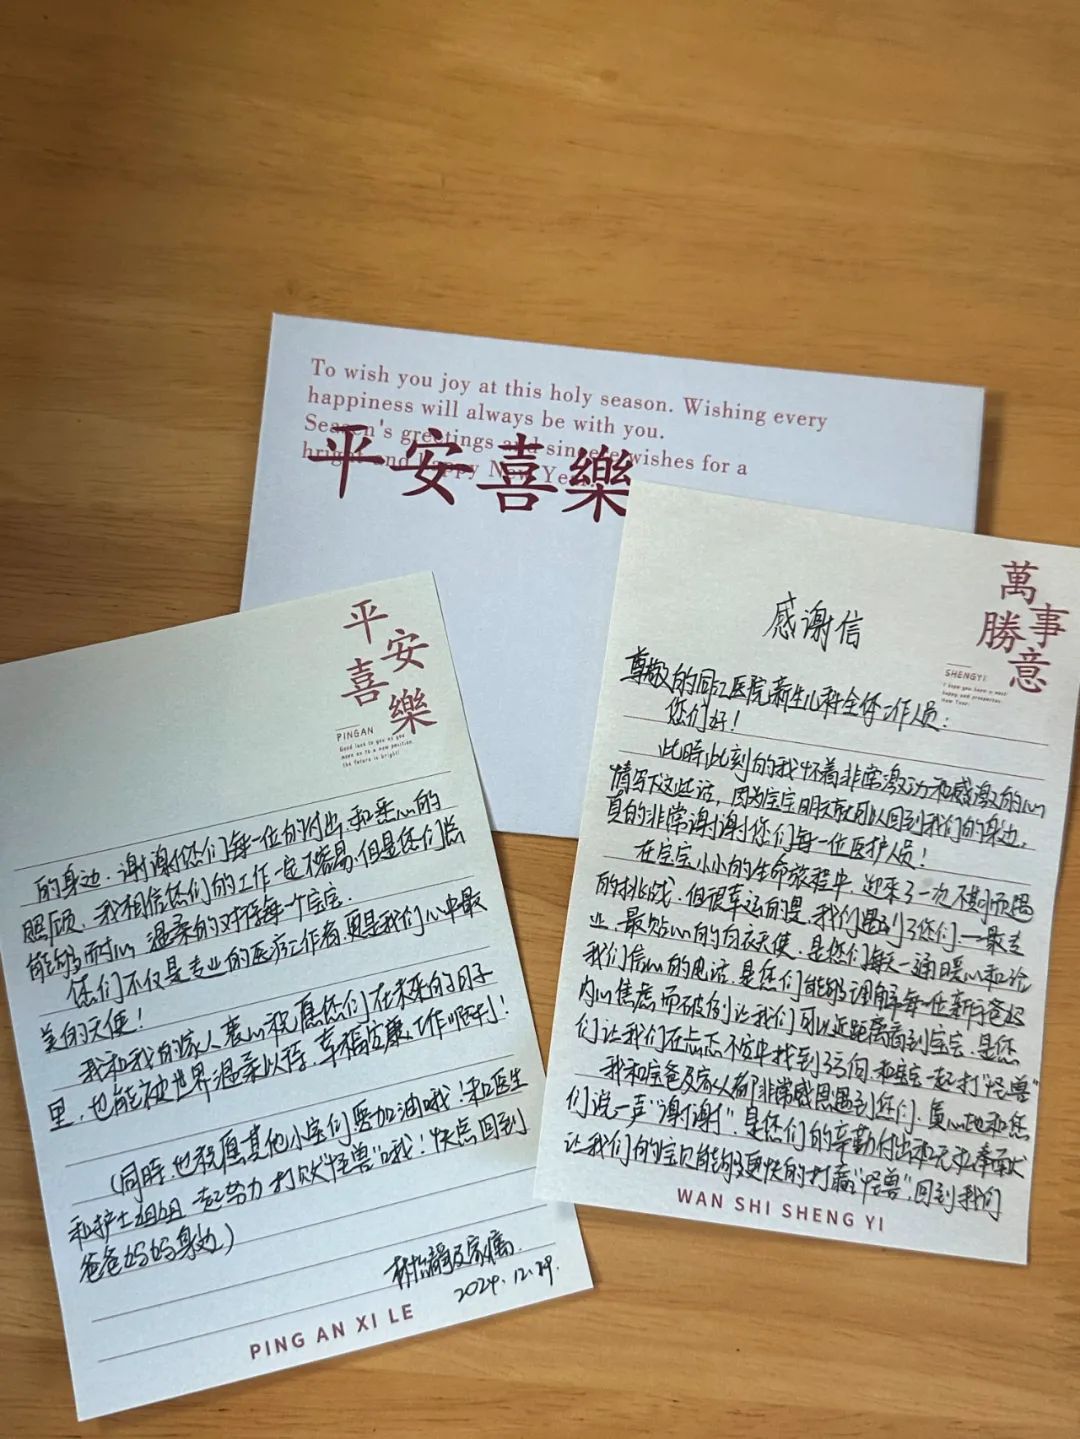 To wish you joy at this holy season. Wishing every
happiness will always be with you.
Season's greetings and sincere wishes for a
bright and happy New Year
平安喜樂
萬事勝意
SHENGYI
I hope you have a most
happy and prosperous
New Year.
感谢信
尊敬的同江医院新生儿科全体工作人员：
您们好！
此时此刻的我怀着非常激动和感激的心
情写下这些话，因为宝宝明天就可以回到我们的身边，
真的非常谢谢您们每一位医护人员！
在宝宝小小的生命旅程中，迎来了一次不期而遇
的挑战，但很幸运的是，我们遇到了您们——最专
业、最贴心的白衣天使，是您们每天一通暖心和给
我们信心的电话，是您们能够理解每一位新手爸妈
内心焦虑而破例让我们可以近距离看到宝宝，是您
们让我们在忐忑不安中找到了方向，和宝宝一起打"怪兽"
我和宝爸及家人都非常感恩遇到您们，真心地和您
们说一声"谢谢"，是您们的辛勤付出和无私奉献
让我们的宝贝能够更快的打赢"怪兽"，回到我们
WAN SHI SHENG YI
平安喜樂
PINGAN
Good luck to you as you
move on to a new position.
the future is bright!
的身边，谢谢您们每一位的付出和悉心的
照顾，我相信您们的工作一定不容易，但是您们总
能够耐心、温柔的对待每一个宝宝。
您们不仅是专业的医疗工作者，更是我们心中最
美的天使！
我和我的家人衷心祝愿您们在未来的日子
里，也能被世界温柔以待，幸福安康，工作顺利！
（同时，也祝愿其他小宝们要加油哦！和医生
和护士姐姐一起努力打败"怪兽"哦！快点回到
爸爸妈妈身边）
2024.12.29.
PING AN XI LE